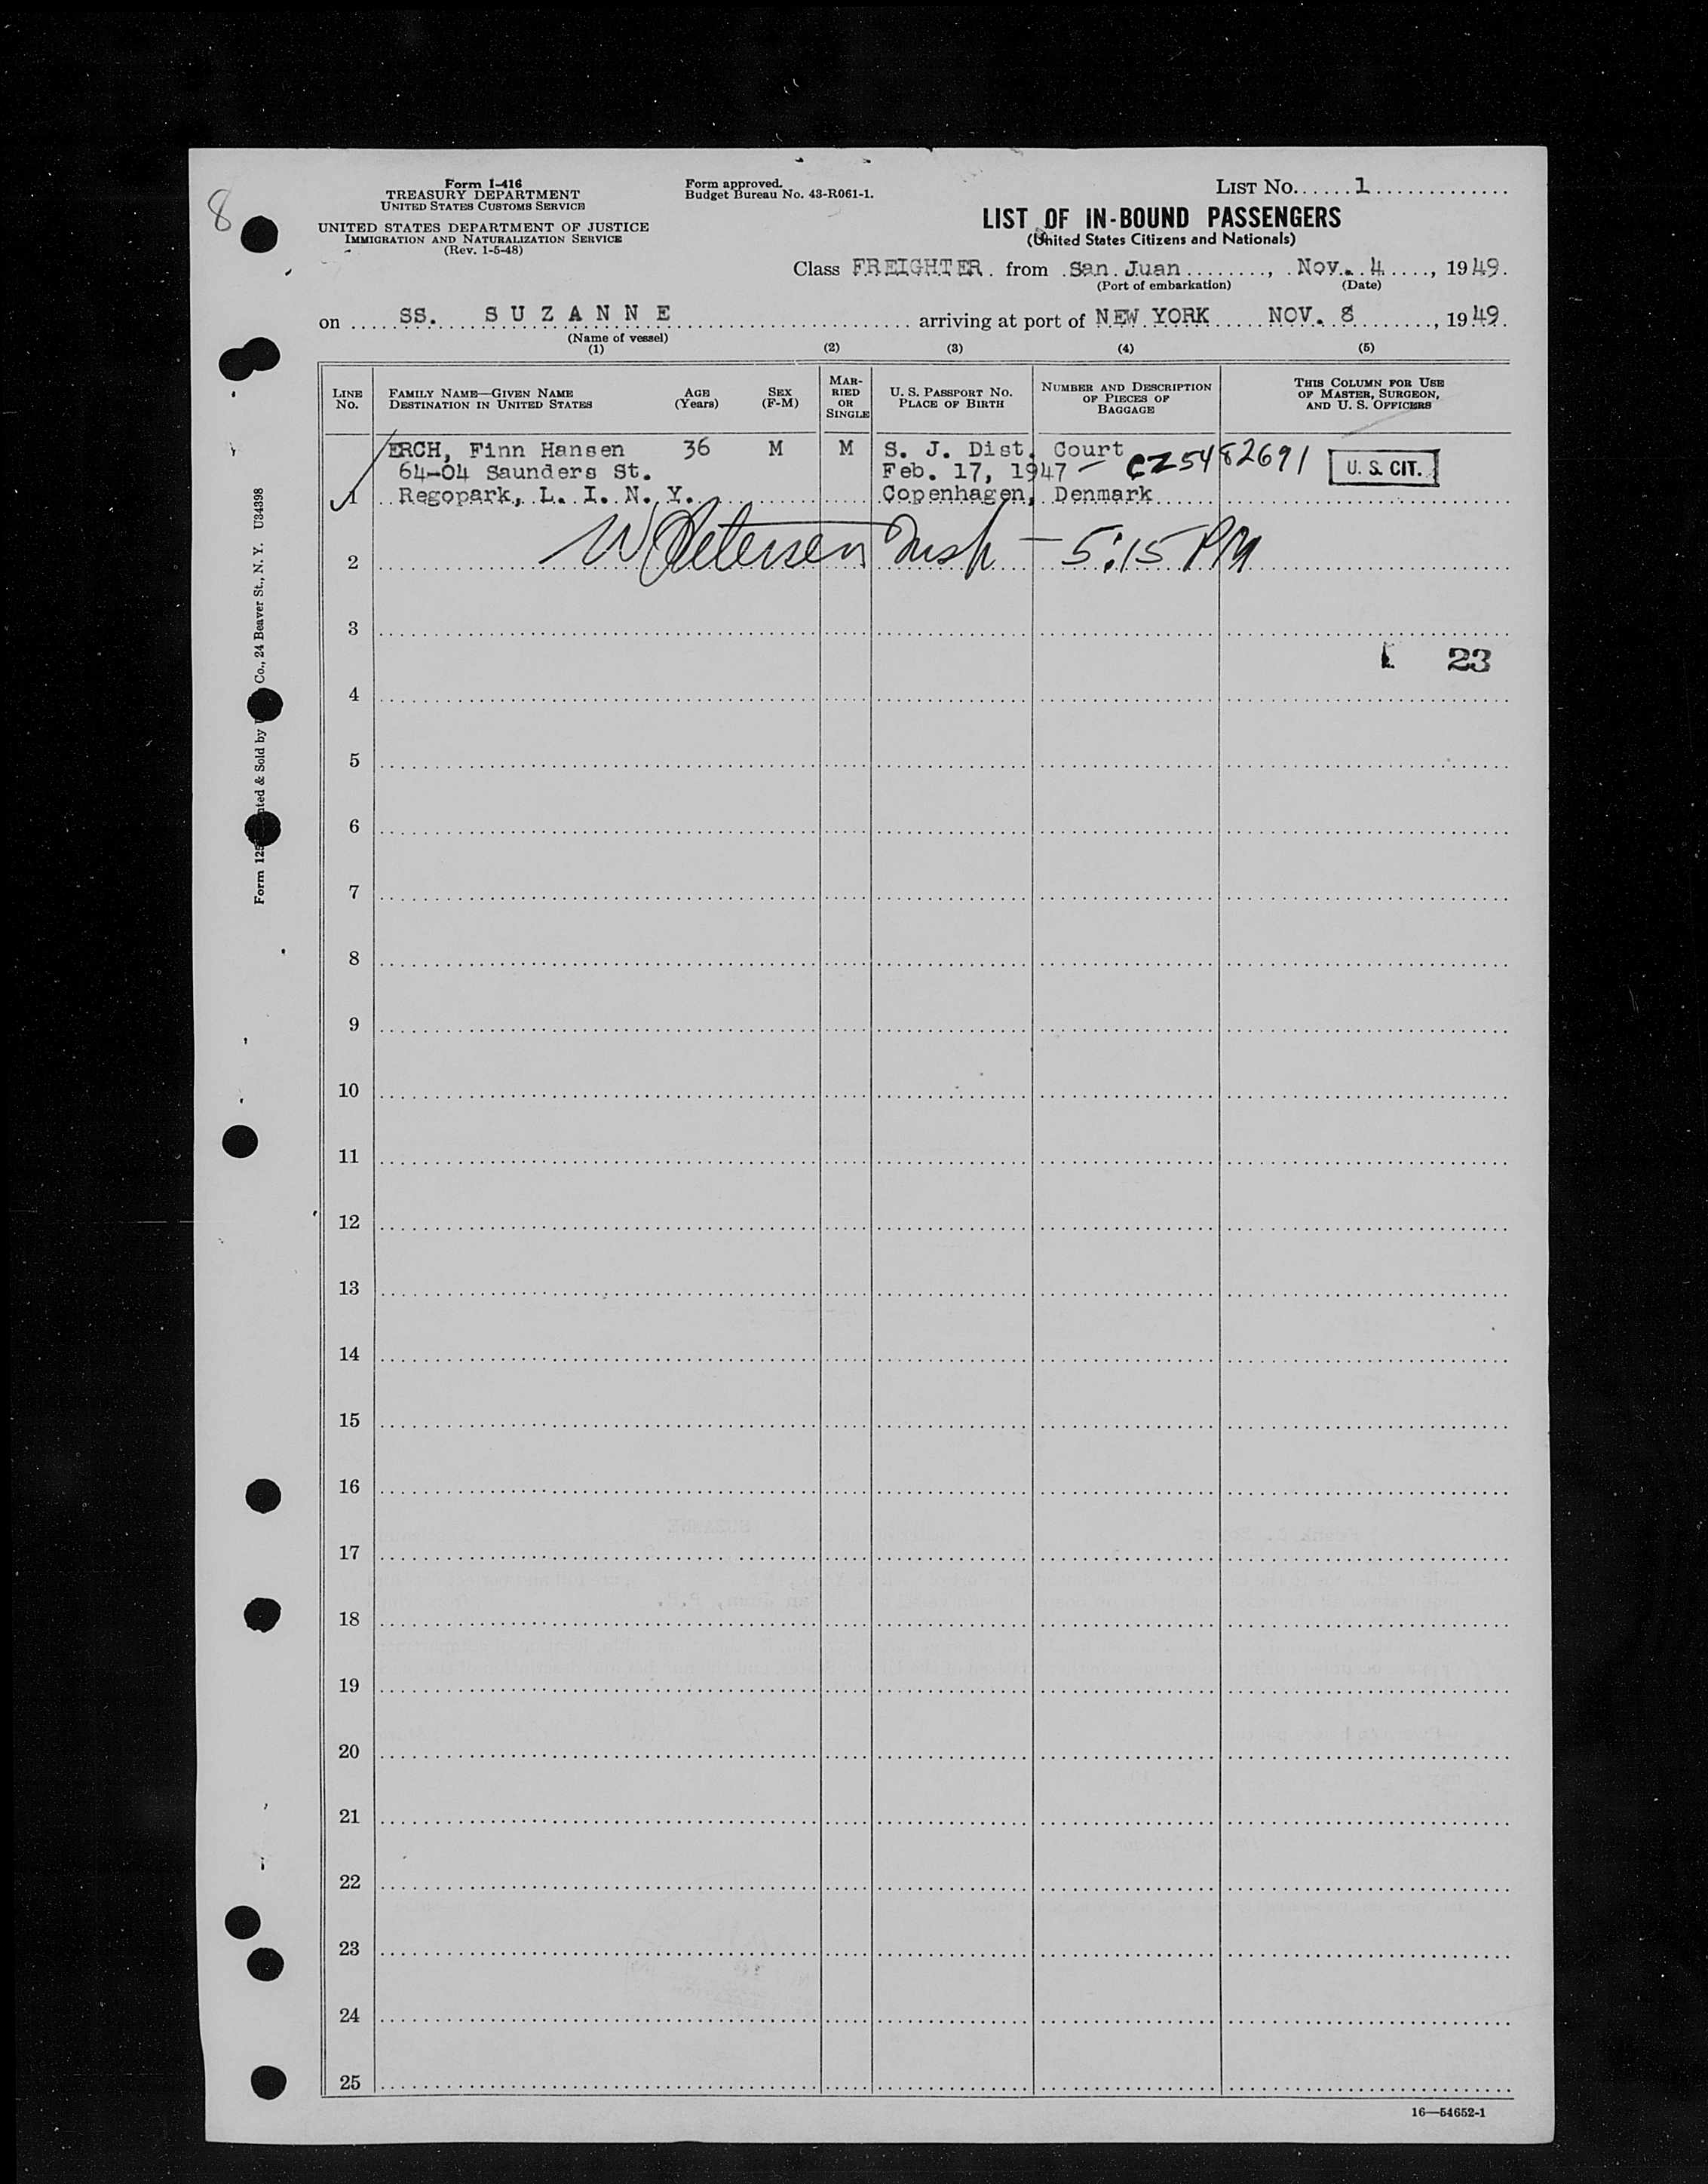 8
Form I-416
TREASURY DEPARTMENT
UNITED STATES CUSTOMS SERVICE
UNITED STATES DEPARTMENT OF JUSTICE
IMMIGRATION AND NATURALIZATION SERVICE
(Rev. 1-5-48)
Form approved.
Budget Bureau No. 43-R061-1.
LIST No. 1
LIST OF IN-BOUND PASSENGERS
(United States Citizens and Nationals)
Class FREIGHTER from San Juan, Nov. 4, 1949.
(Port of embarkation) (Date)
on SS. SUZANNE arriving at port of NEW YORK NOV. 8, 1949.
(Name of vessel)
(1) (2) (3) (4) (5)
LINE No. FAMILY NAME—GIVEN NAME DESTINATION IN UNITED STATES AGE (Years) SEX (F-M) MARRIED OR SINGLE U. S. PASSPORT No. PLACE OF BIRTH NUMBER AND DESCRIPTION OF PIECES OF BAGGAGE THIS COLUMN FOR USE OF MASTER, SURGEON, AND U. S. OFFICERS
ERCH, Finn Hansen 36 M M S. J. Dist. Court
64-04 Saunders St. Feb. 17, 1947 — CZ5482691 U. S. CIT.
1 Regopark, L. I. N. Y. Copenhagen, Denmark
2 Petersen Insp — 5:15 PM
3
23
4
5
6
7
8
9
10
11
12
13
14
15
16
17
18
19
20
21
22
23
24
25
16—54652-1
Form 125 nted & Sold by Co., 24 Beaver St., N. Y. U34398